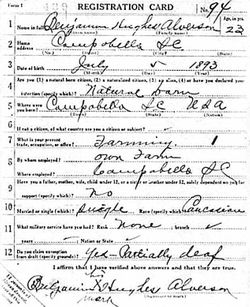 REGISTRATION CARD No. 94
1 Name in full Benjamin Hughes Alverson Age, in yrs. 23
2 Home address Campobella SC
3 Date of birth July 5 1893
4 Are you (1) a natural born citizen, (2) a naturalized citizen, (3) an alien, (4) or have you declared your
intention (specify which)? Natural Born
5 Where were you born? Campobella SC USA
6 If not a citizen, of what country are you a citizen or subject?
7 What is your present trade, occupation, or office? Farming 1
8 By whom employed? Own Farm
Where employed? Campobella SC
9 Have you a father, mother, wife, child under 12, or a sister or brother under 12, solely dependent on you for
support? No
10 Married or single (which)? Single Race (specify which)? Caucasian
11 What military service have you had? Rank None branch
years Nation or State
12 Do you claim exemption from draft (specify grounds)? Yes Partially deaf
I affirm that I have verified above answers and that they are true.
Benjamin X Hughes Alverson
mark